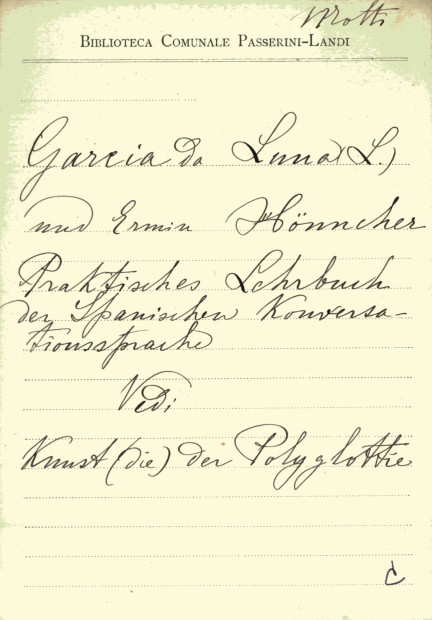 BIBLIOTECA COMUNALE PASSERINI-LANDI
Garcia da Luna (L.)
und Ermin Hönncher
Praktisches Lehrbuch
der Spanischen Konversa-
tionssprache
Vedi
Kunst (die) der Polyglottie
C